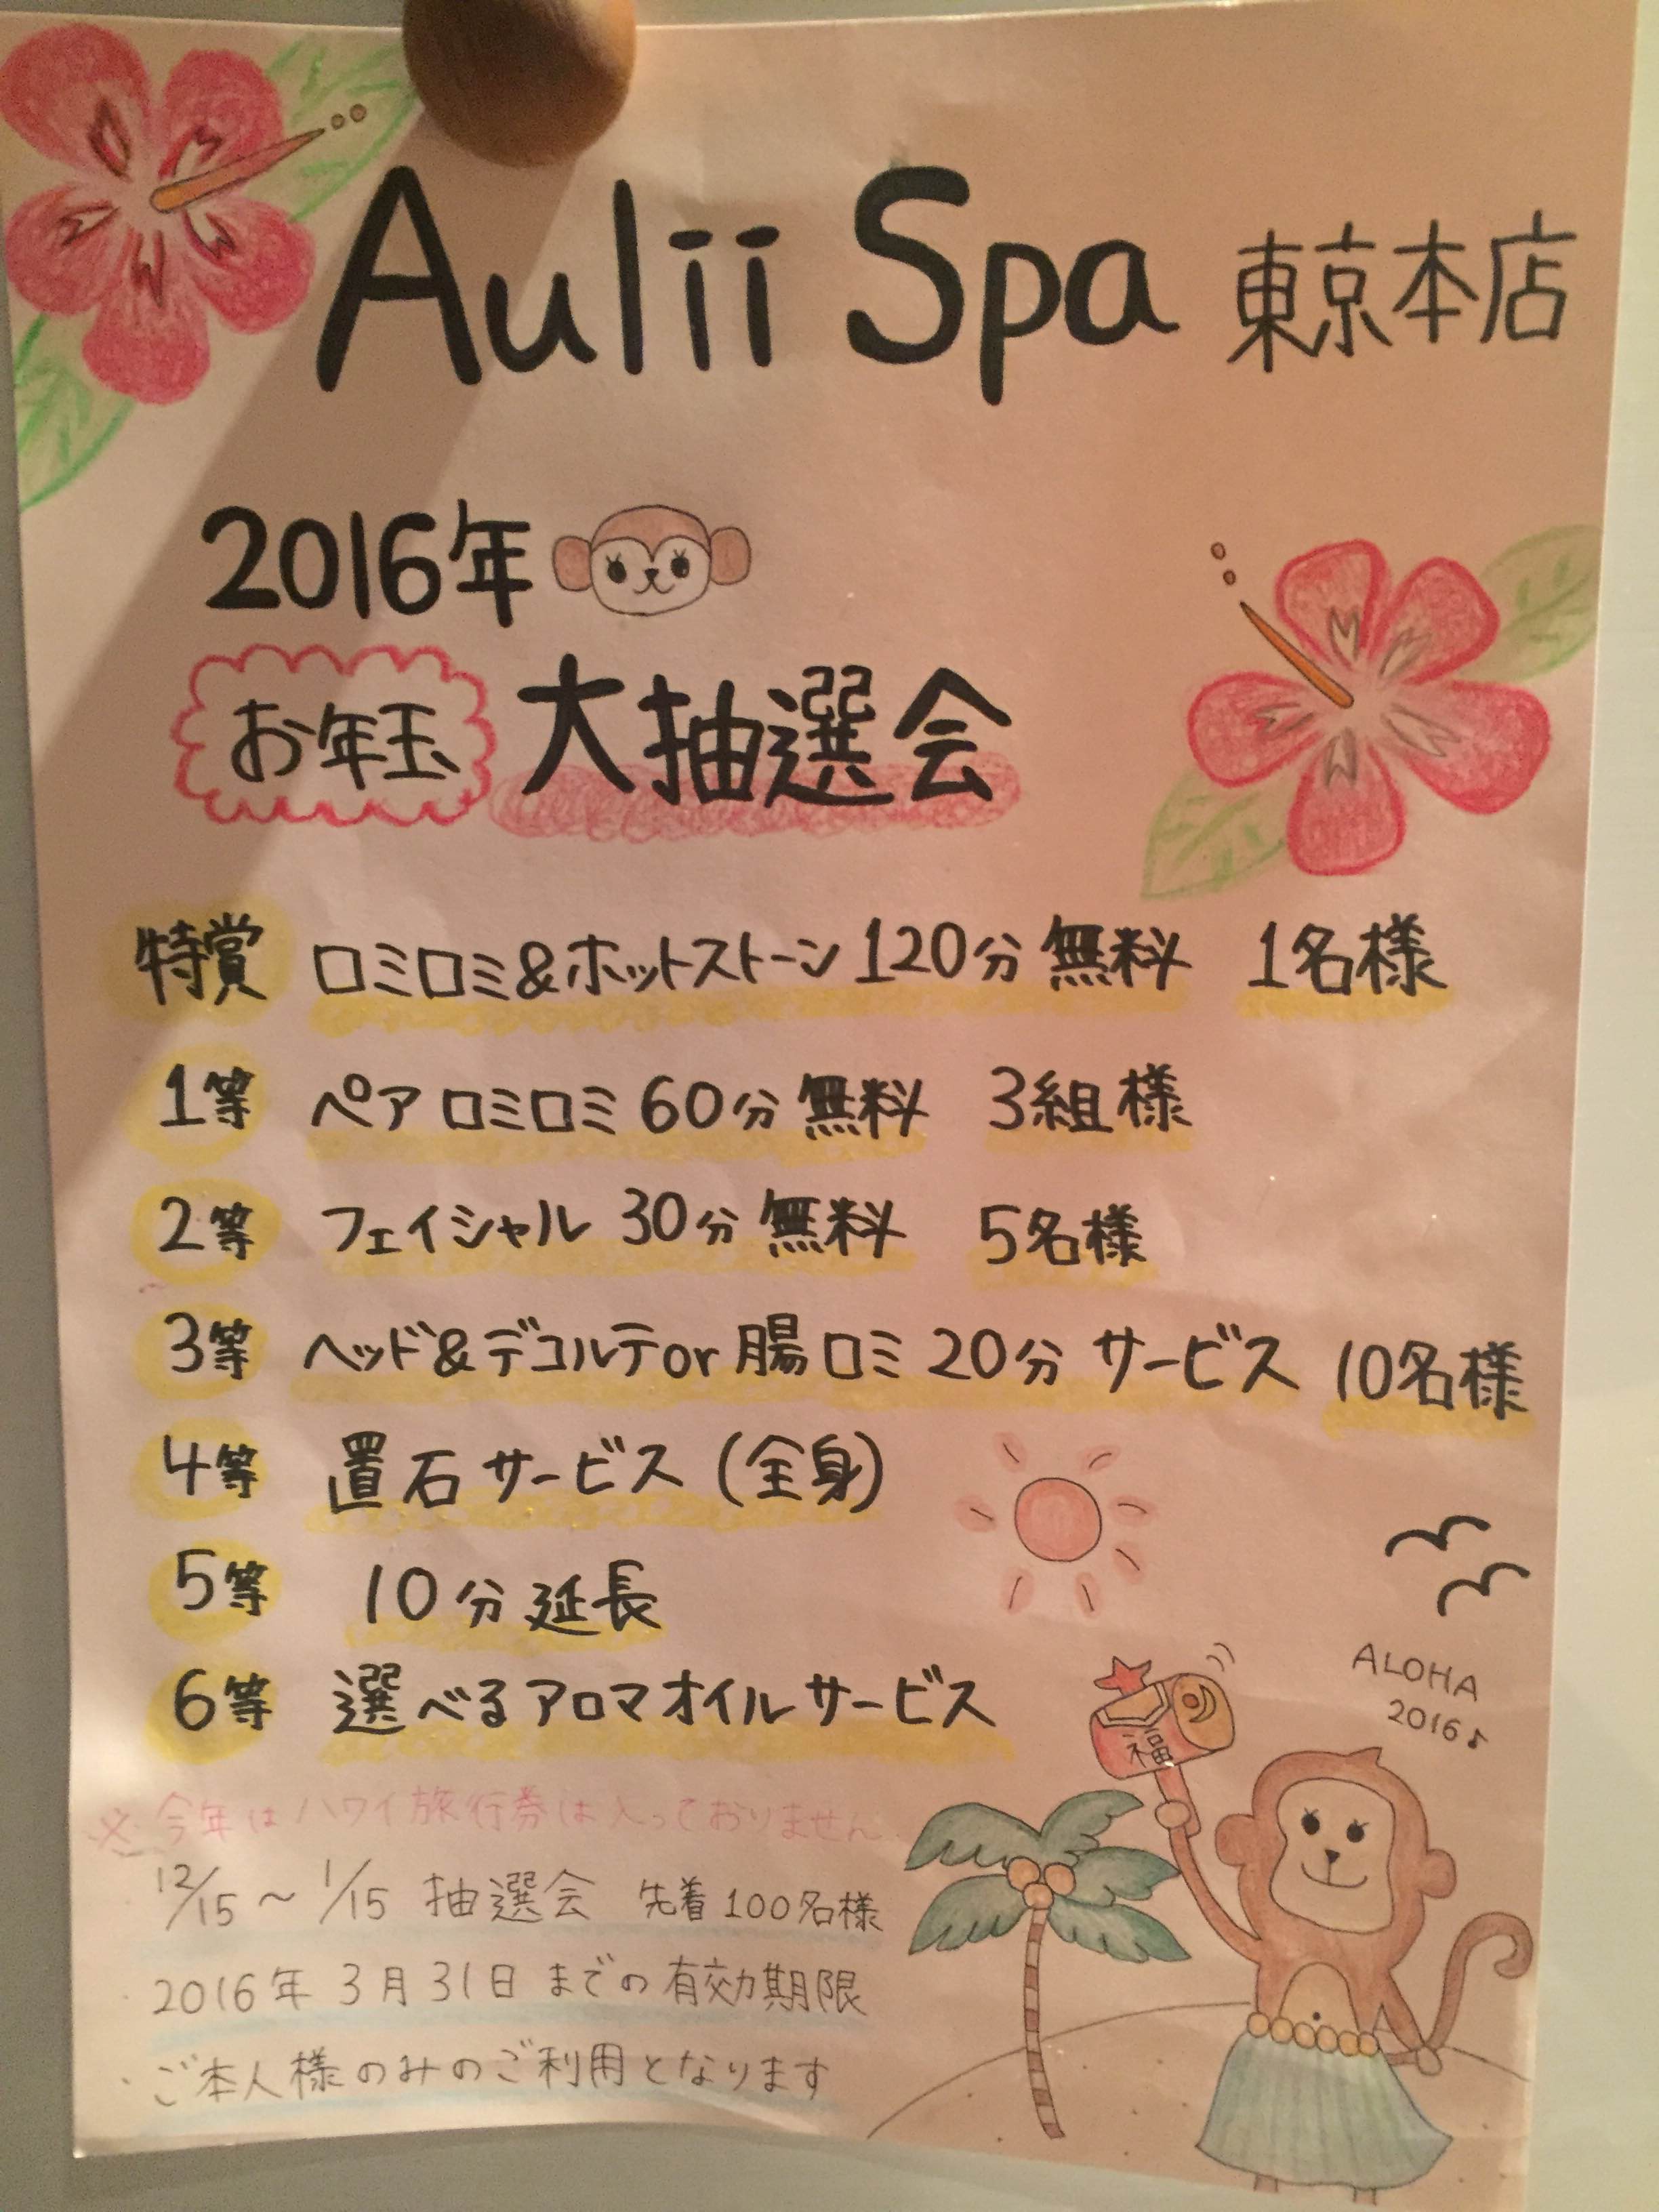 Aulii Spa 東京本店
2016年
お年玉 大抽選会
特賞 ロミロミ&ホットストーン 120分 無料 1名様
1等 ペアロミロミ 60分 無料 3組様
2等 フェイシャル 30分 無料 5名様
3等 ヘッド&デコルテor腸ロミ 20分 サービス 10名様
4等 置石サービス (全身)
5等 10分延長
6等 選べるアロマオイルサービス
ALOHA
2016♪
福
※今年はハワイ旅行券は入っておりません。
・12/15~1/15 抽選会 先着100名様
・2016年3月31日までの有効期限
・ご本人様のみのご利用となります